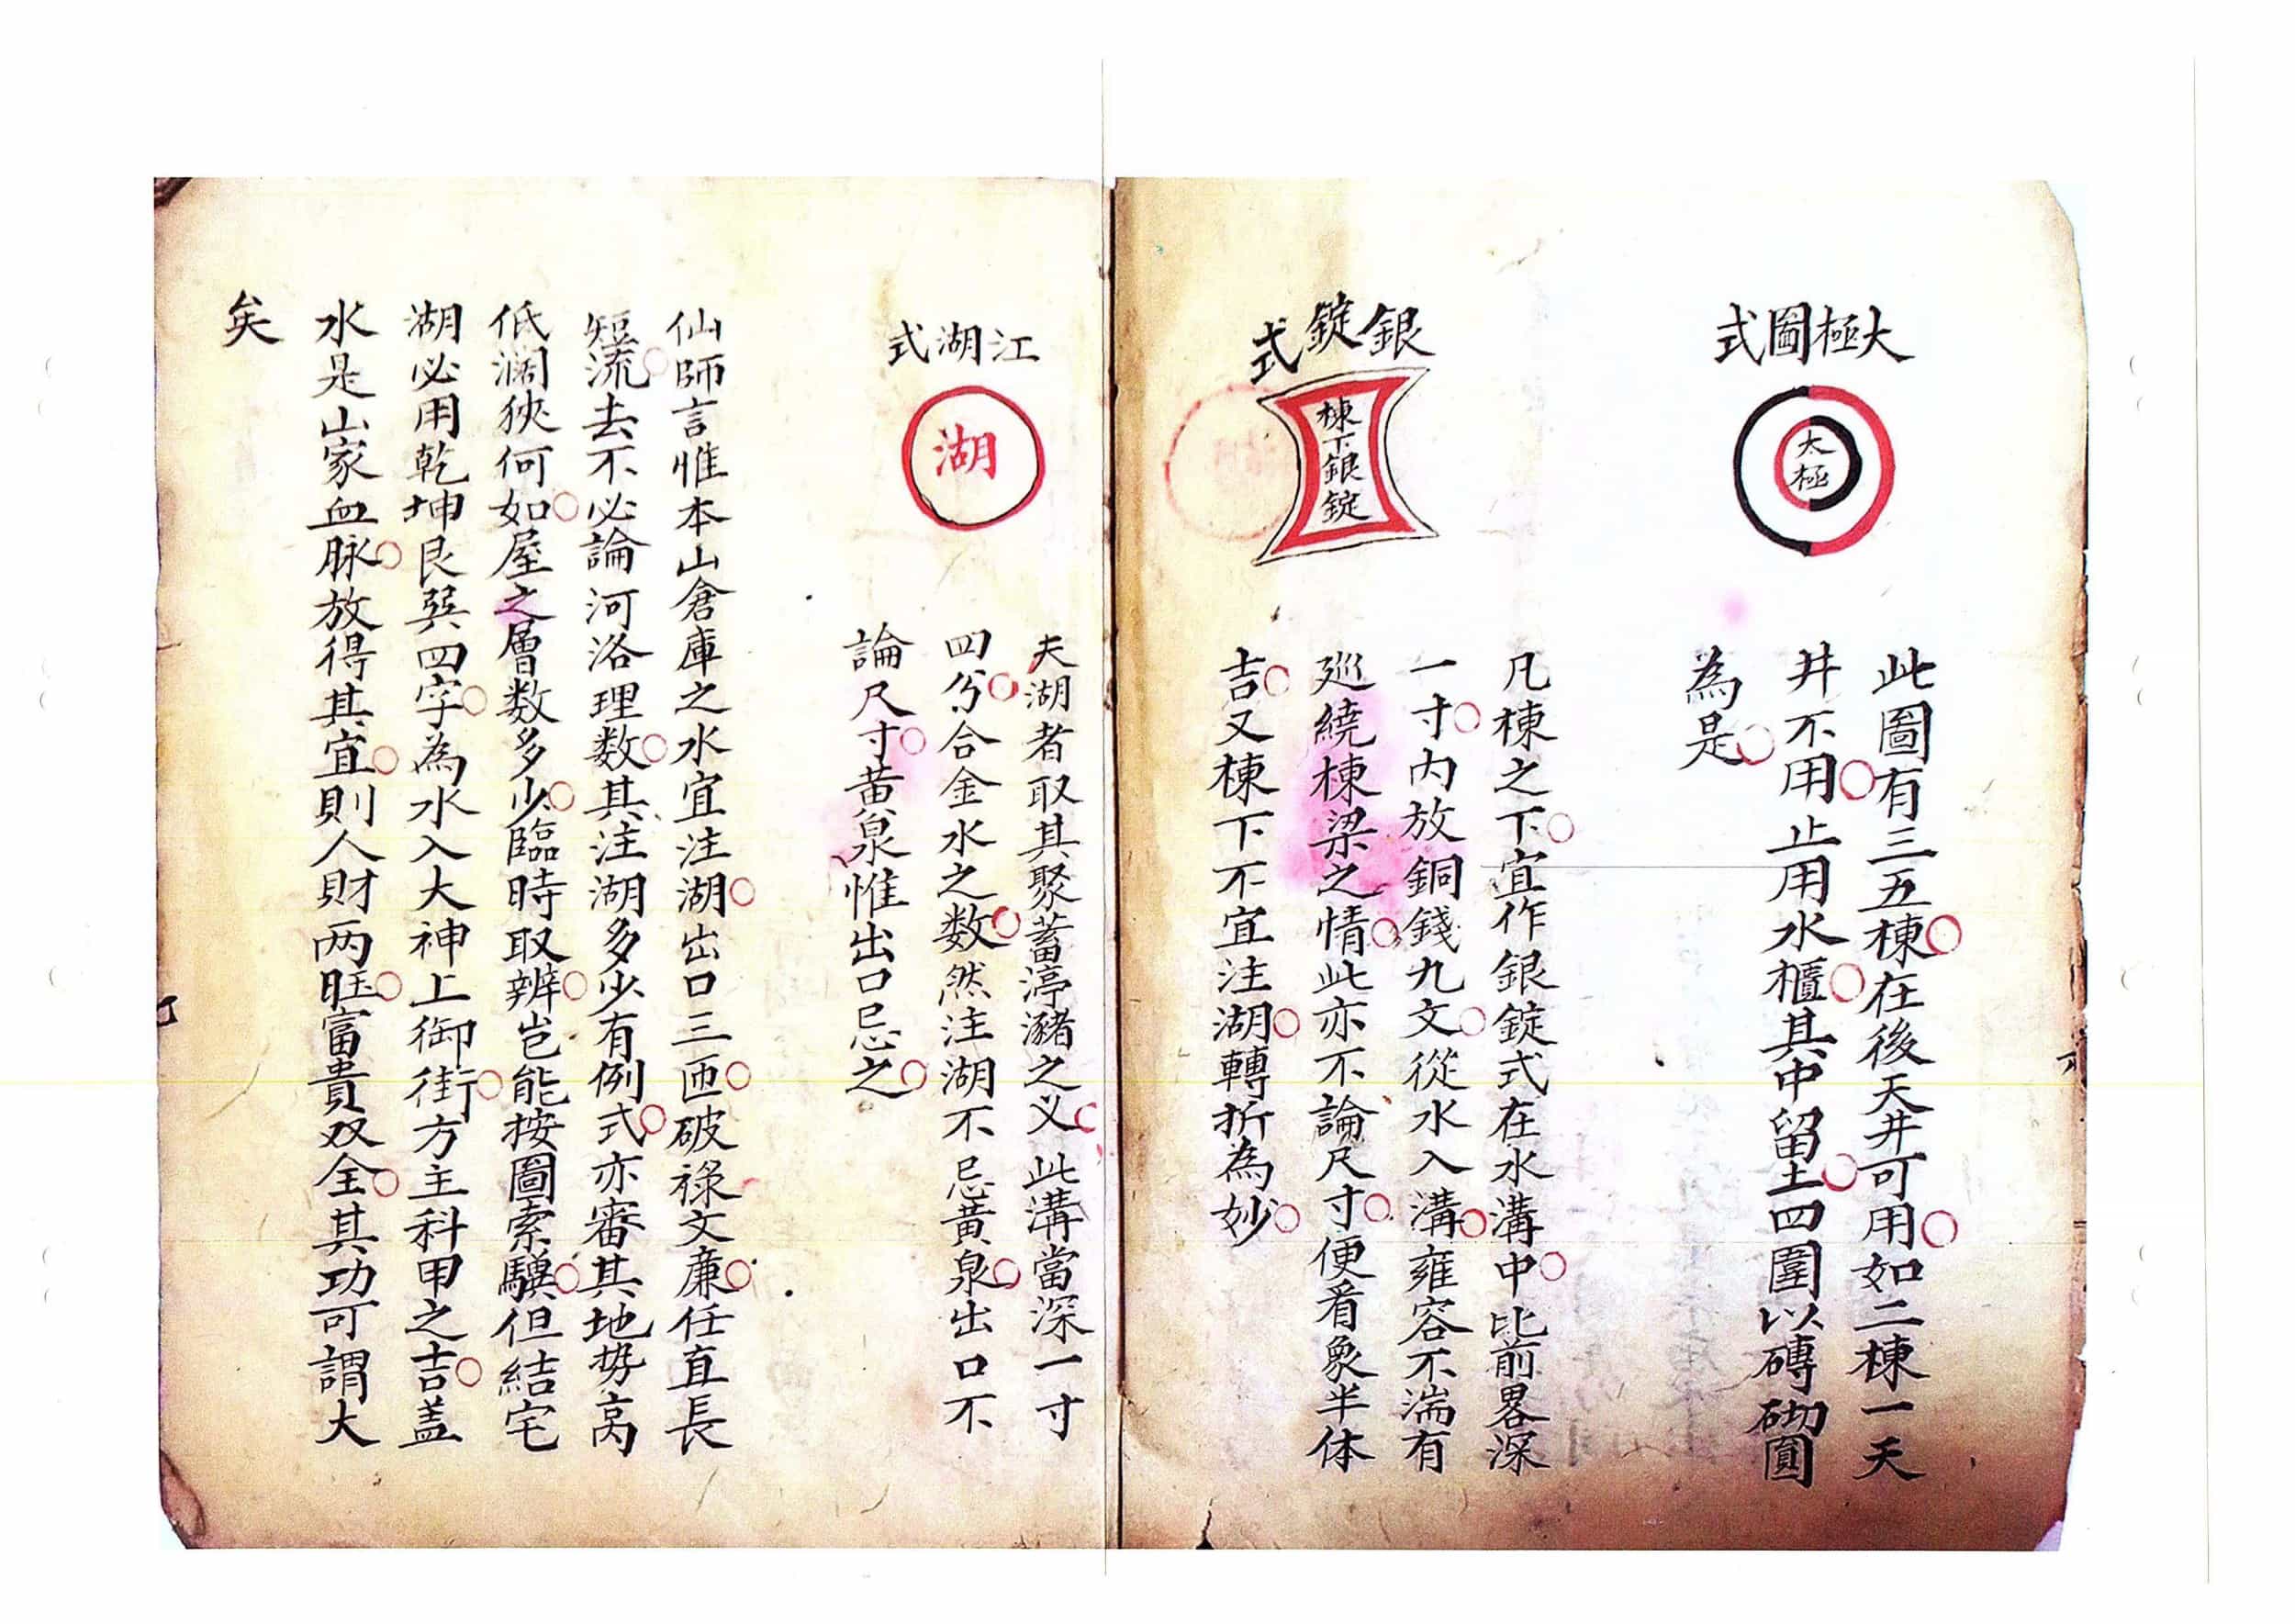 大極圖式
太
極
此圖有三五棟在後天井可用如二棟一天
井不用止用水櫃其中留土四圍以磚砌圓
為是
銀錠式
棟下銀錠
凡棟之下宜作銀錠式在水溝中比前畧深
一寸內放銅錢九文從水入溝雍容不湍有
廵繞棟梁之情此亦不論尺寸便看象半体
吉又棟下不宜注湖轉折為妙
江湖式
湖
夫湖者取其聚蓄渟瀦之义此溝當深一寸
四分合金水之数然注湖不忌黄泉出口不
論尺寸黄泉惟出口忌之
仙師言惟本山倉庫之水宜注湖出口三匝破祿文廉任直長
短流去不必論河洛理数其注湖多少有例式亦審其地势高
低濶狹何如屋之層数多少臨時取辨岂能按圖索驥但結宅
湖必用乾坤艮巽四字為水入大神上御街方主科甲之吉盖
水是山家血脉放得其宜則人財两旺富貴双全其功可謂大
矣